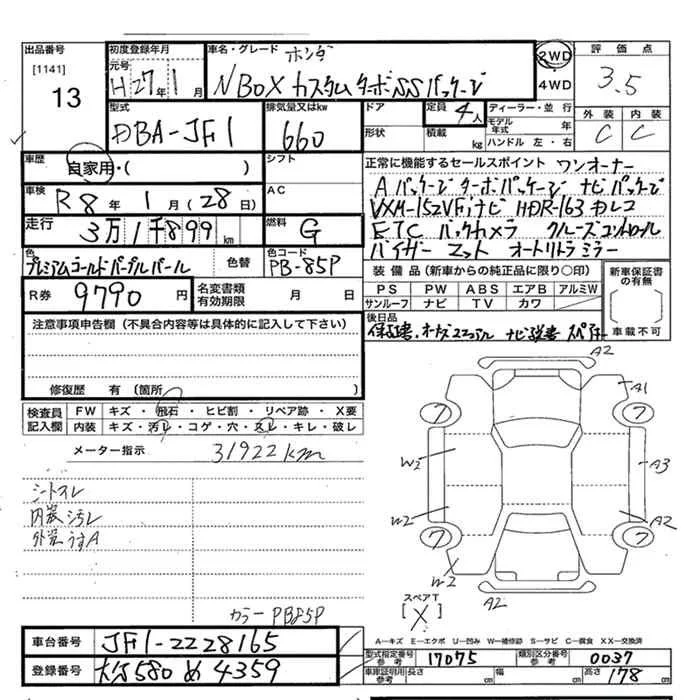 出品番号
[1141]
13
初度登録年月
元号
H27年1月
車名・グレード ホンダ
NBOX カスタム ターボSSパッケージ
2WD
・
4WD
評価点
3.5
外装 内装
C C
型式
DBA-JF1
排気量又はkw
660
ドア
形状
定員
4人
積載
kg
ディーラー・並行
モデル年式 年
ハンドル 左・右
車歴
自家用・( )
シフト
AC
車検
R8年1月(28日)
走行
3万1千899km
燃料
G
正常に機能するセールスポイント ワンオーナー
Aパッケージ ターボパッケージ ナビパッケージ
VXM-152VFiナビ HDR-163 ドレコ
ETC バックカメラ クルーズコントロール
バイザー マット オートリトラミラー
色
プレミアムゴールドパープルパール
色替
色コード
PB-85P
R券 9790円
名変書類
有効期限
月 日
装備品(新車からの純正品に限り○印)
PS PW ABS エアB アルミW
サンルーフ ナビ TV カワ
新車保証書
の有無
車載不可
後日品
保証書、 ナビ説書
注意事項申告欄(不具合内容等は具体的に記入して下さい)
修復歴 有(箇所 )
検査員
記入欄
FW キズ・飛石・ヒビ割・リペア跡・X要
内装 キズ・汚レ・コゲ・穴・スレ・キレ・破レ
メーター指示 31922km
シートスレ
内装汚レ
外装うすA
カラーPB85P
A2
A1
7
7
W2
A3
W2
A2
7
7
W2
A2
スペアT
[X]
A-キズ E-エクボ U-凹み W-補修跡 S-サビ C-腐食 XX-交換済
車台番号 JF1-2228165
登録番号 大分580 め 4359
型式指定番号
参考
17075
類別区分番号
参考
0037
車庫証明用
参考
長さ cm
幅 cm
高さ 178 cm